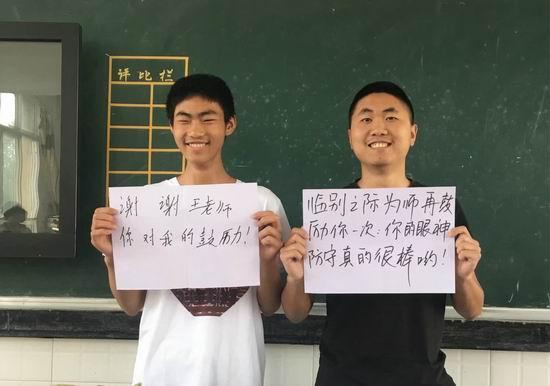 评比栏
谢谢王老师
你对我的鼓励！
临别之际为师再鼓
励你一次：你的眼神
防守真的很棒哟！